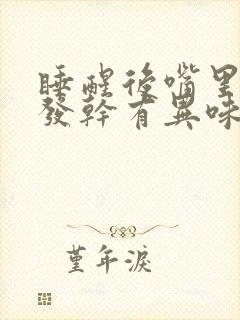 睡醒後嘴里
發幹有異味
堇年淚